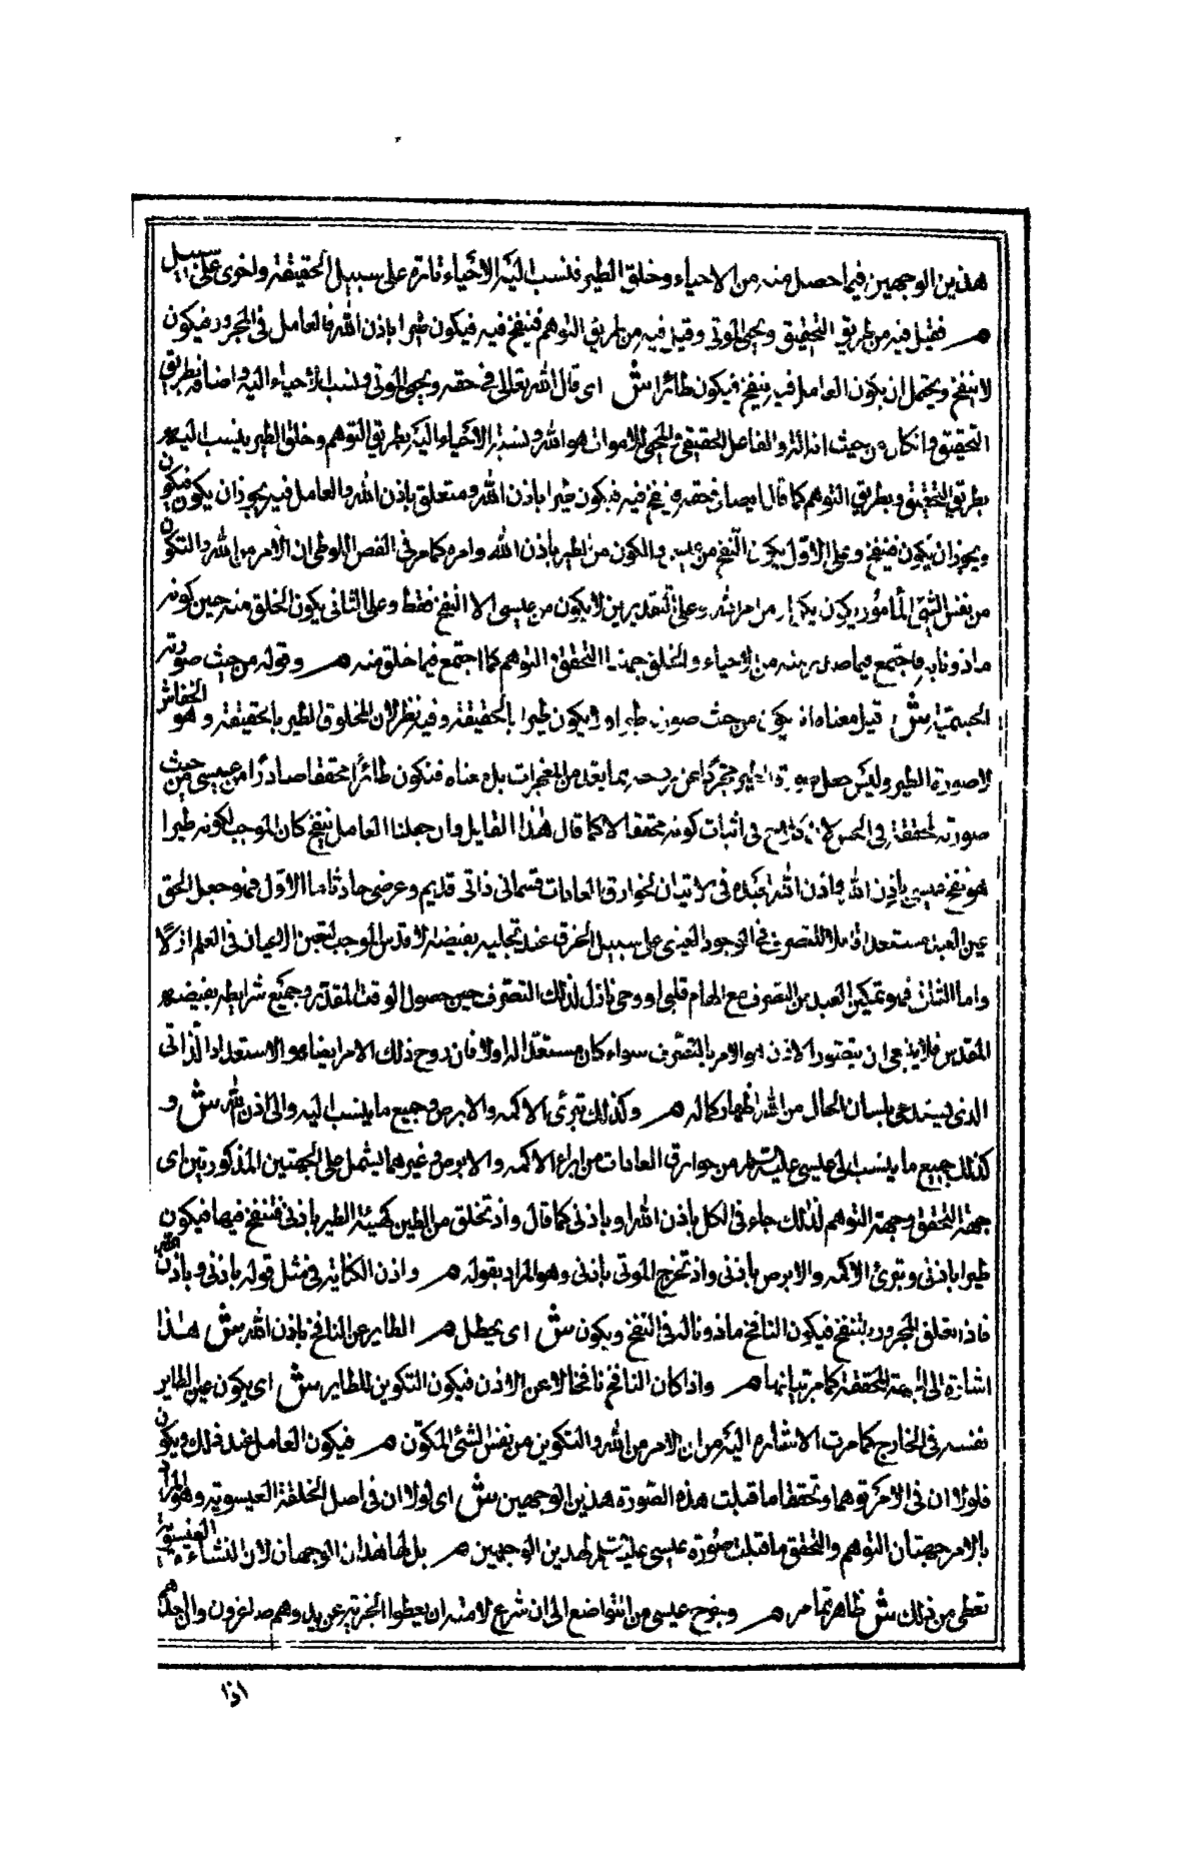 هذين الوجهين فيما حصل منه من الاحياء وخلق الطير فنسب اليه الاحياء تارة على سبيل الحقيقة واخرى على سبيل
م فقيل فيه من طريق التحقيق ويحيى الموتى وقيل فيه من طريق التوهم فينفخ فيه فيكون طيرا باذن الله فالعامل في المجرور فيكون
لا ينفخ ويحتمل ان يكون العامل فيه ينفخ فيكون طائرا ش اى قال الله تعالى في حقه ويحيى الموتى ونسب الاحياء اليه واضافه بطريق
التحقيق وانكان من حيث والفاعل الحقيقى والمحيى للاموات هو الله ونسبة الاحياء اليه بطريق التوهم وخلق الطير ينسب اليه
بطريق التحقيق وبطريق التوهم كما قال ايضا في حقه فينفخ فيه فيكون طيرا باذن الله ومتعلق باذن الله والعامل فيه يجوز ان يكون فيكون
ويجوز ان يكون فينفخ وعلى الاول يكون النفخ من عيسى والكون من الطير باذن الله وامره كما مر في الفص اللوطى ان الامر من الله والتكون
من نفس الشئ المأمور يكون من امر الله وعلى التقديرين لا يكون من عيسى الا النفخ فقط وعلى الثانى يكون الخلق منه حين كونه
ماذونا به فاجتمع فيما صدر منه من الاحياء والخلق جهتا التحقق والتوهم كما اجتمع فيما خلق منه م وقوله من حيث صورته
الجسمية ش قيل معناه انه يكون من حيث صورته طيرا ولا يكون طيرا بالحقيقة وفيه نظر لان المخلوق الطير بالحقيقة وهو الخفاش
لا صورة الطير وليس جعل صورة الطير مجردا عن روحه بما يعد من المعجزات بل معناه فتكون طائرا محققا صادرا من عيسى من حيث
صورته المحققة في الحس في اثبات كونه محققا لا كما قال هذا القايل وان جعلنا العامل ينفخ كان الموجب لكونه طيرا
هو نفخ عيسى باذن الله واذن الله لعبده في الاتيان لخوارق العادات قسمان ذاتى قديم وعرضى حادث اما الاول فهو جعل الحق
عين العبد مستعدا قابلا للتصرف في الوجود العينى على سبيل الخرق عند تجليه بفيضه الاقدس الموجب لتعين الاعيان في العلم ازلا
واما الثانى فهو تمكين العبد من التصرف مع الهام قلبى او وحى نازل لذلك التصرف حين حصول الوقت المقدر وجميع شرايطه بفيضه
المقدس فلا ينبغى ان يتصور الاذن هو الامر بالتصرف سواء كان مستعدا له اولا فان روح ذلك الامر ايضا هو الاستعداد الذاتى
الذى يستدعى بلسان الحال من الله اظهار كماله م وكذلك تبرئ الاكمه والابرص وجميع ما ينسب اليه والى اذن الله ش و
كذلك جميع ما ينسب الى عيسى عليه السلم من خوارق العادات من ابراء الاكمه والابرص وغيرهما يشمل على الجهتين المذكورتين اى
جهة التحقق وجهة التوهم لذلك جاء في الكل باذن الله او باذنى كما قال واذ تخلق من الطين كهيئة الطير باذنى فتنفخ فيها فيكون
طيرا باذنى وتبرئ الاكمه والابرص باذنى واذ تخرج الموتى باذنى وهو المراد بقوله م واذن الكناية في مثل قوله باذنى وباذن الله
فاذا تعلق المجرور بتنفخ فيكون النافخ ماذونا له في النفخ ويكون ش اى يحصل م الطاير عن النافخ باذن الله ش هذا
اشارة الى الجهة المحققة كما مر بيانها م واذا كان النافخ نافخا لا عن الاذن فيكون التكوين للطاير ش اى يكون عين الطاير
نفسه في الخارج كما مرت الاشارة اليه من ان الامر من الله والتكوين من نفس الشئ المكون م فيكون العامل عند ذلك ويكون
فلولا ان في الامر توهما وتحققا ما قبلت هذه الصورة هذين الوجهين ش اى لولا ان في اصل الخلقة العيسوية وهو المراد
بالامر جهتان التوهم والتحقق ما قبلت صورة عيسى عليه السلم لهذين الوجهين م بل لها هذان الوجهان لان النشاءة العيسوية
تعطى من ذلك ش ظاهر مما مر م وخرج عيسى من التواضع الى ان شرع لامته ان يعطوا الجزية عن يد وهم صاغرون وان احدهم
اذا